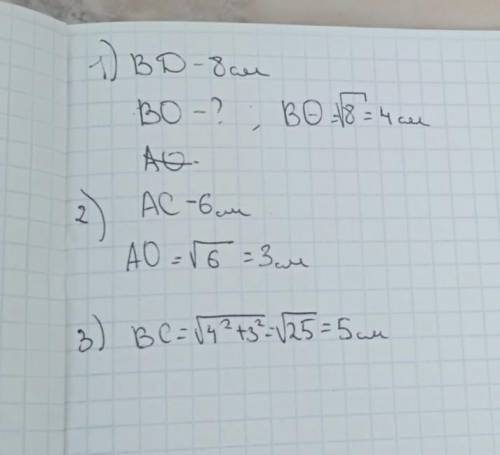 1) BD - 8 см
BO - ? ; BO = √8 = 4 см
AO.
2) AC - 6 см
AO = √6 = 3 см
3) BC = √4²+3² = √25 = 5 см